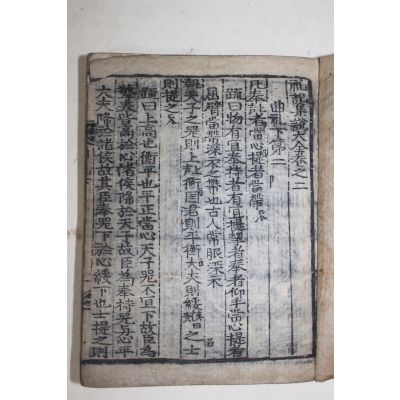 禮記集說大全卷之二
曲禮下第二
凡奉者當心提者當帶
疏曰物有宜奉持者有宜提挈者奉者仰手當心提者
屈臂當帶深衣之帶也古人常服深衣
執天子之器則上衡國君則平衡大夫則綏之士
則提之
疏曰上高也衡平也平正當心天子器不宜下故臣為
奉皆高於心諸侯降於天子故臣為奉持器與心平
大夫降於諸侯故其臣奉器下於心綏下也士提之則